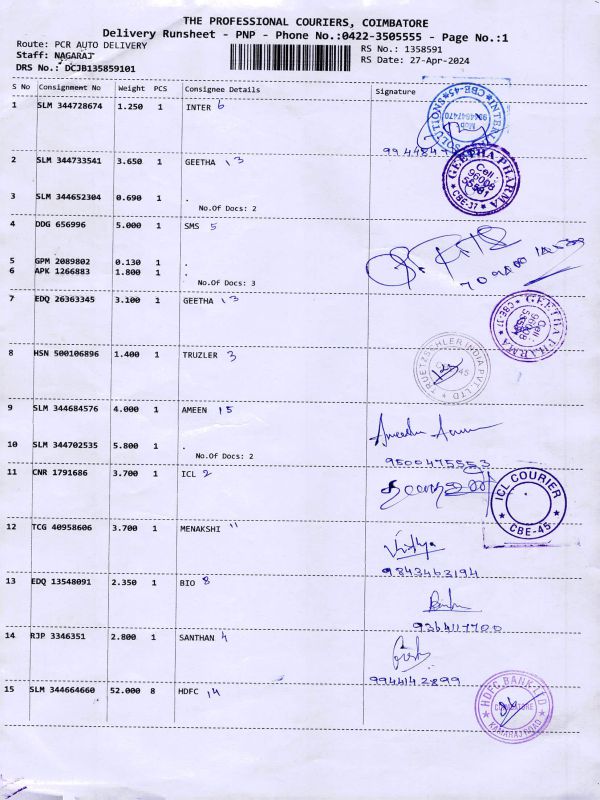 THE PROFESSIONAL COURIERS, COIMBATORE
Delivery Runsheet - PNP - Phone No.:0422-3505555 - Page No.:1
Route: PCR AUTO DELIVERY RS No.: 1358591
Staff: NAGARAJ RS Date: 27-Apr-2024
DRS No.: DCJB135859101
S No Consignment No Weight PCS Consignee Details Signature
1 SLM 344728674 1.250 1 INTER 6
2 SLM 344733541 3.650 1 GEETHA 13
GEETHA PHARMA
Cell :
CBE-37
3 SLM 344652304 0.690 1 .
No.Of Docs: 2
4 DDG 656996 5.000 1 SMS 5
5 GPM 2089802 0.130 1 .
6 APK 1266883 1.800 1 .
No.Of Docs: 3
7 EDQ 26363345 3.100 1 GEETHA 13
GEETHA PHARMA
Cell :
CBE-37
8 HSN 500106896 1.400 1 TRUZLER 3
TRUETZSCHLER INDIA PVT. LTD
9 SLM 344684576 4.000 1 AMEEN 15
10 SLM 344702535 5.800 1 .
No.Of Docs: 2
9500475553
11 CNR 1791686 3.700 1 ICL 2
ICL COURIER
CBE-45
12 TCG 40958606 3.700 1 MENAKSHI 11
Vidhya
9843463194
13 EDQ 13548091 2.350 1 BIO 8
9364117700
14 RJP 3346351 2.800 1 SANTHAN 4
9944142899
15 SLM 344664660 52.000 8 HDFC 14
HDFC BANK LTD
COIMBATORE
KAMARAJ ROAD